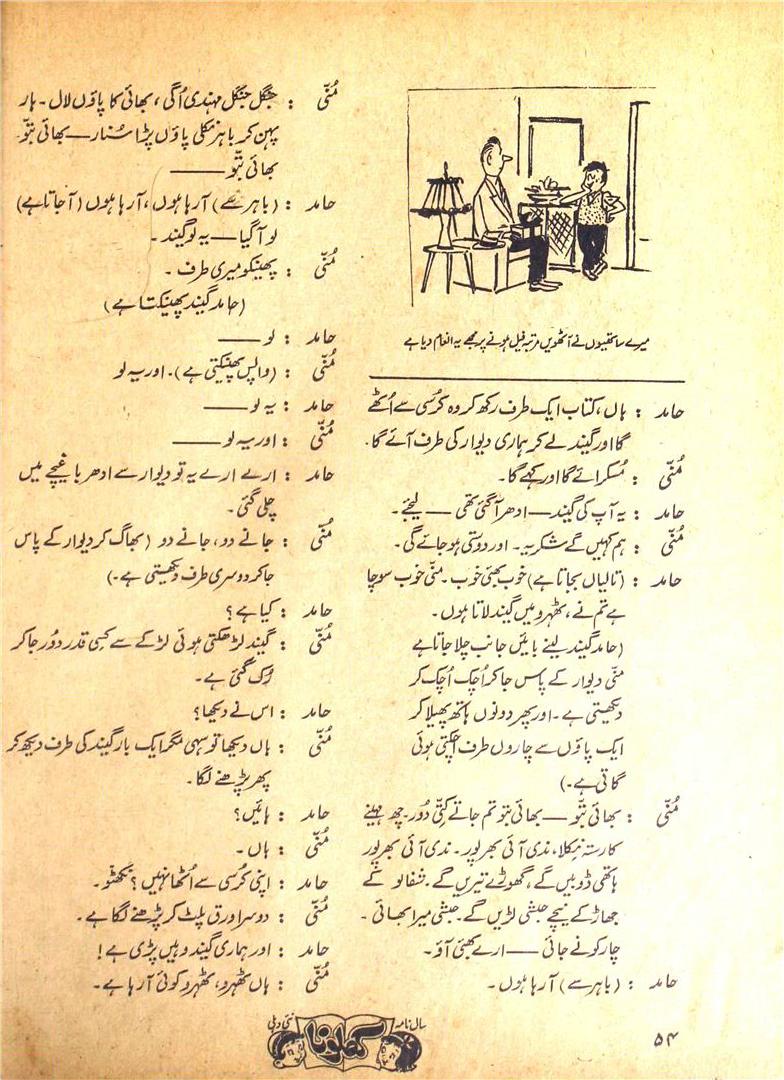 میرے ساتھیوں نے آٹھویں مرتبہ فیل ہونے پر مجھے یہ انعام دیا ہے
حامد : ہاں، کتاب ایک طرف رکھ کر وہ کرسی سے اُٹھے
گا اور گیند لے کر ہماری دیوار کی طرف آئے گا۔
مُنّی : مُسکرائے گا اور کہے گا۔
حامد : یہ آپ کی گیند — ادھر آ گئی تھی — لیجئے۔
مُنّی : ہم کہیں گے شکریہ۔ اور دوستی ہو جائے گی۔
حامد : (تالیاں بجاتا ہے) خوب بھئی خوب۔ منّی خوب سوچا
ہے تم نے، ٹھہرو میں گیند لاتا ہوں۔
(حامد گیند لینے بائیں جانب چلا جاتا ہے
منّی دیوار کے پاس جا کر اُچک اُچک کر
دیکھتی ہے۔ اور پھر دونوں ہاتھ پھیلا کر
ایک پاؤں سے چاروں طرف اُچکتی ہوئی
گاتی ہے۔)
مُنّی : بھائی تبّو — بھائی تبّو تم جاتے کتنی دُور۔ چھ مہینے
کا رستہ نکلا، ندی آئی بھرپور۔ ندی آئی بھرپور
ہاتھی ڈوبیں گے، گھوڑے تیریں گے۔ شفالو کے
جھاڑ کے نیچے حبشی لڑیں گے۔ حبشی میرا بھائی۔
چار کونے جائی — ارے بھئی آؤ۔
حامد : (باہر سے) آ رہا ہوں۔
مُنّی : جنگل جنگل مہندی اُگی، بھائی کا پاؤں لال۔ ہار
پہن کر باہر نکلی پاؤں پڑا سُنار — بھائی تبّو۔
بھائی تبّو —
حامد : (باہر سے) آ رہا ہوں، آ رہا ہوں (آ جاتا ہے)
لو آ گیا — یہ لو گیند۔
مُنّی : پھینکو میری طرف۔
(حامد گیند پھینکتا ہے)
حامد : لو —
مُنّی : (واپس پھینکتی ہے)۔ اور یہ لو
حامد : یہ لو —
مُنّی : اور یہ لو —
حامد : ارے ارے یہ تو دیوار سے ادھر باغیچے میں
چلی گئی۔
مُنّی : جانے دو، جانے دو (بھاگ کر دیوار کے پاس
جا کر دوسری طرف دیکھتی ہے۔)
حامد : کیا ہے؟
مُنّی : گیند لڑھکتی ہوئی لڑکے سے کسی قدر دُور جا کر
رُک گئی ہے۔
حامد : اس نے دیکھا؟
مُنّی : ہاں دیکھا تو سہی مگر ایک بار گیند کی طرف دیکھ کر
پھر پڑھنے لگا۔
حامد : ہائیں؟
مُنّی : ہاں۔
حامد : اپنی کرسی سے اُٹھا نہیں؟ نکھٹو۔
مُنّی : دوسرا ورق پلٹ کر پڑھنے لگا ہے۔
حامد : اور ہماری گیند وہیں پڑی ہے!
مُنّی : ہاں ٹھہرو، ٹھہرو کوئی آ رہا ہے۔
سال نامہ کھلونا نئی دہلی
۵۴